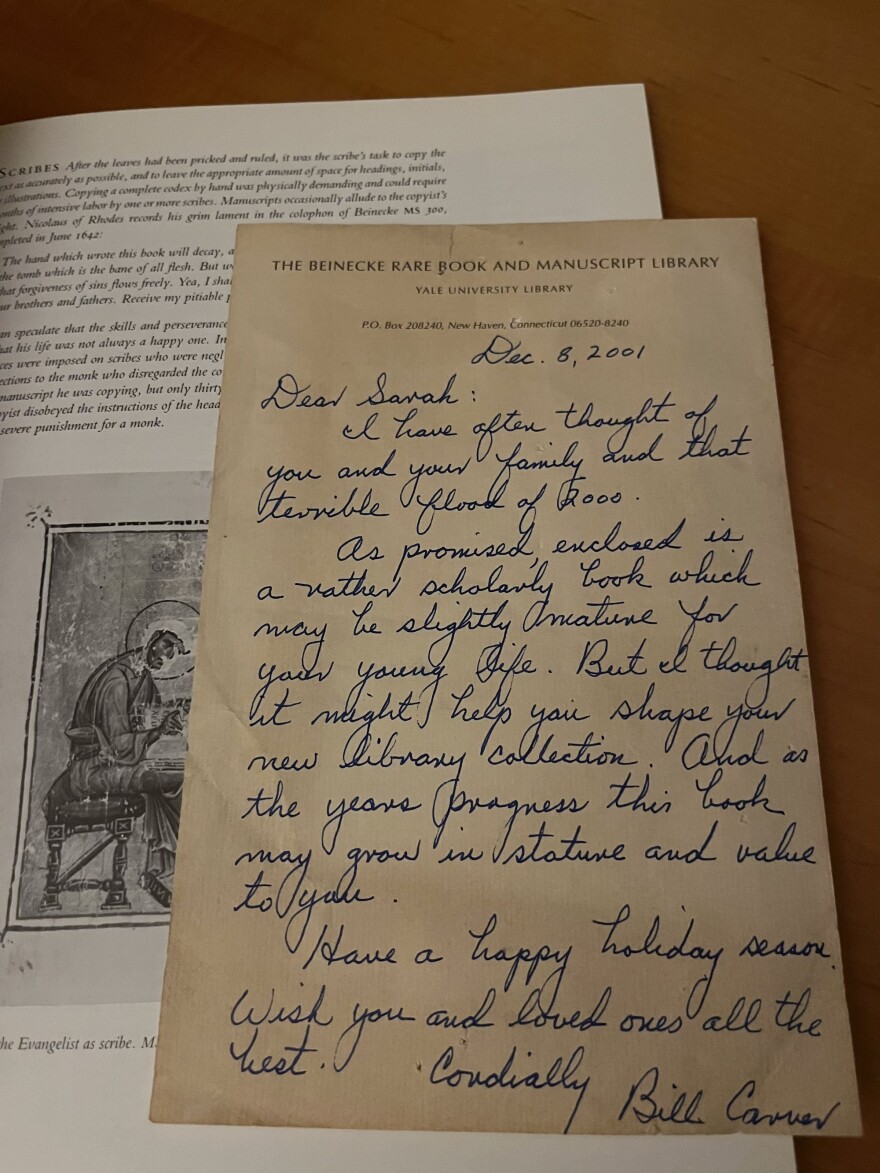 SCRIBES After the leaves had been pricked and ruled, it was the scribe's task to copy the
ext as accurately as possible, and to leave the appropriate amount of space for headings, initials,
illustrations. Copying a complete codex by hand was physically demanding and could require
onths of intensive labor by one or more scribes. Manuscripts occasionally allude to the copyist's
ight. Nicolaus of Rhodes records his grim lament in the colophon of Beinecke MS 300,
mpleted in June 1642:
The hand which wrote this book will decay, a
the tomb which is the bane of all flesh. But w
hat forgiveness of sins flows freely. Yea, I shal
ur brothers and fathers. Receive my pitiable p
an speculate that the skills and perseverance
hat his life was not always a happy one. In
ces were imposed on scribes who were negl
ections to the monk who disregarded the co
manuscript he was copying, but only thirty
yist disobeyed the instructions of the head
severe punishment for a monk.
he Evangelist as scribe. M
THE BEINECKE RARE BOOK AND MANUSCRIPT LIBRARY
YALE UNIVERSITY LIBRARY
P.O. Box 208240, New Haven, Connecticut 06520-8240
Dec. 8, 2001
Dear Sarah:
I have often thought of
you and your family and that
terrible flood of 2000.
As promised, enclosed is
a rather scholarly book which
may be slightly mature for
your young life. But I thought
it might help you shape your
new library collection. And as
the years progress this book
may grow in stature and value
to you.
Have a happy holiday season.
Wish you and loved ones all the
best. Cordially
Bill Carver